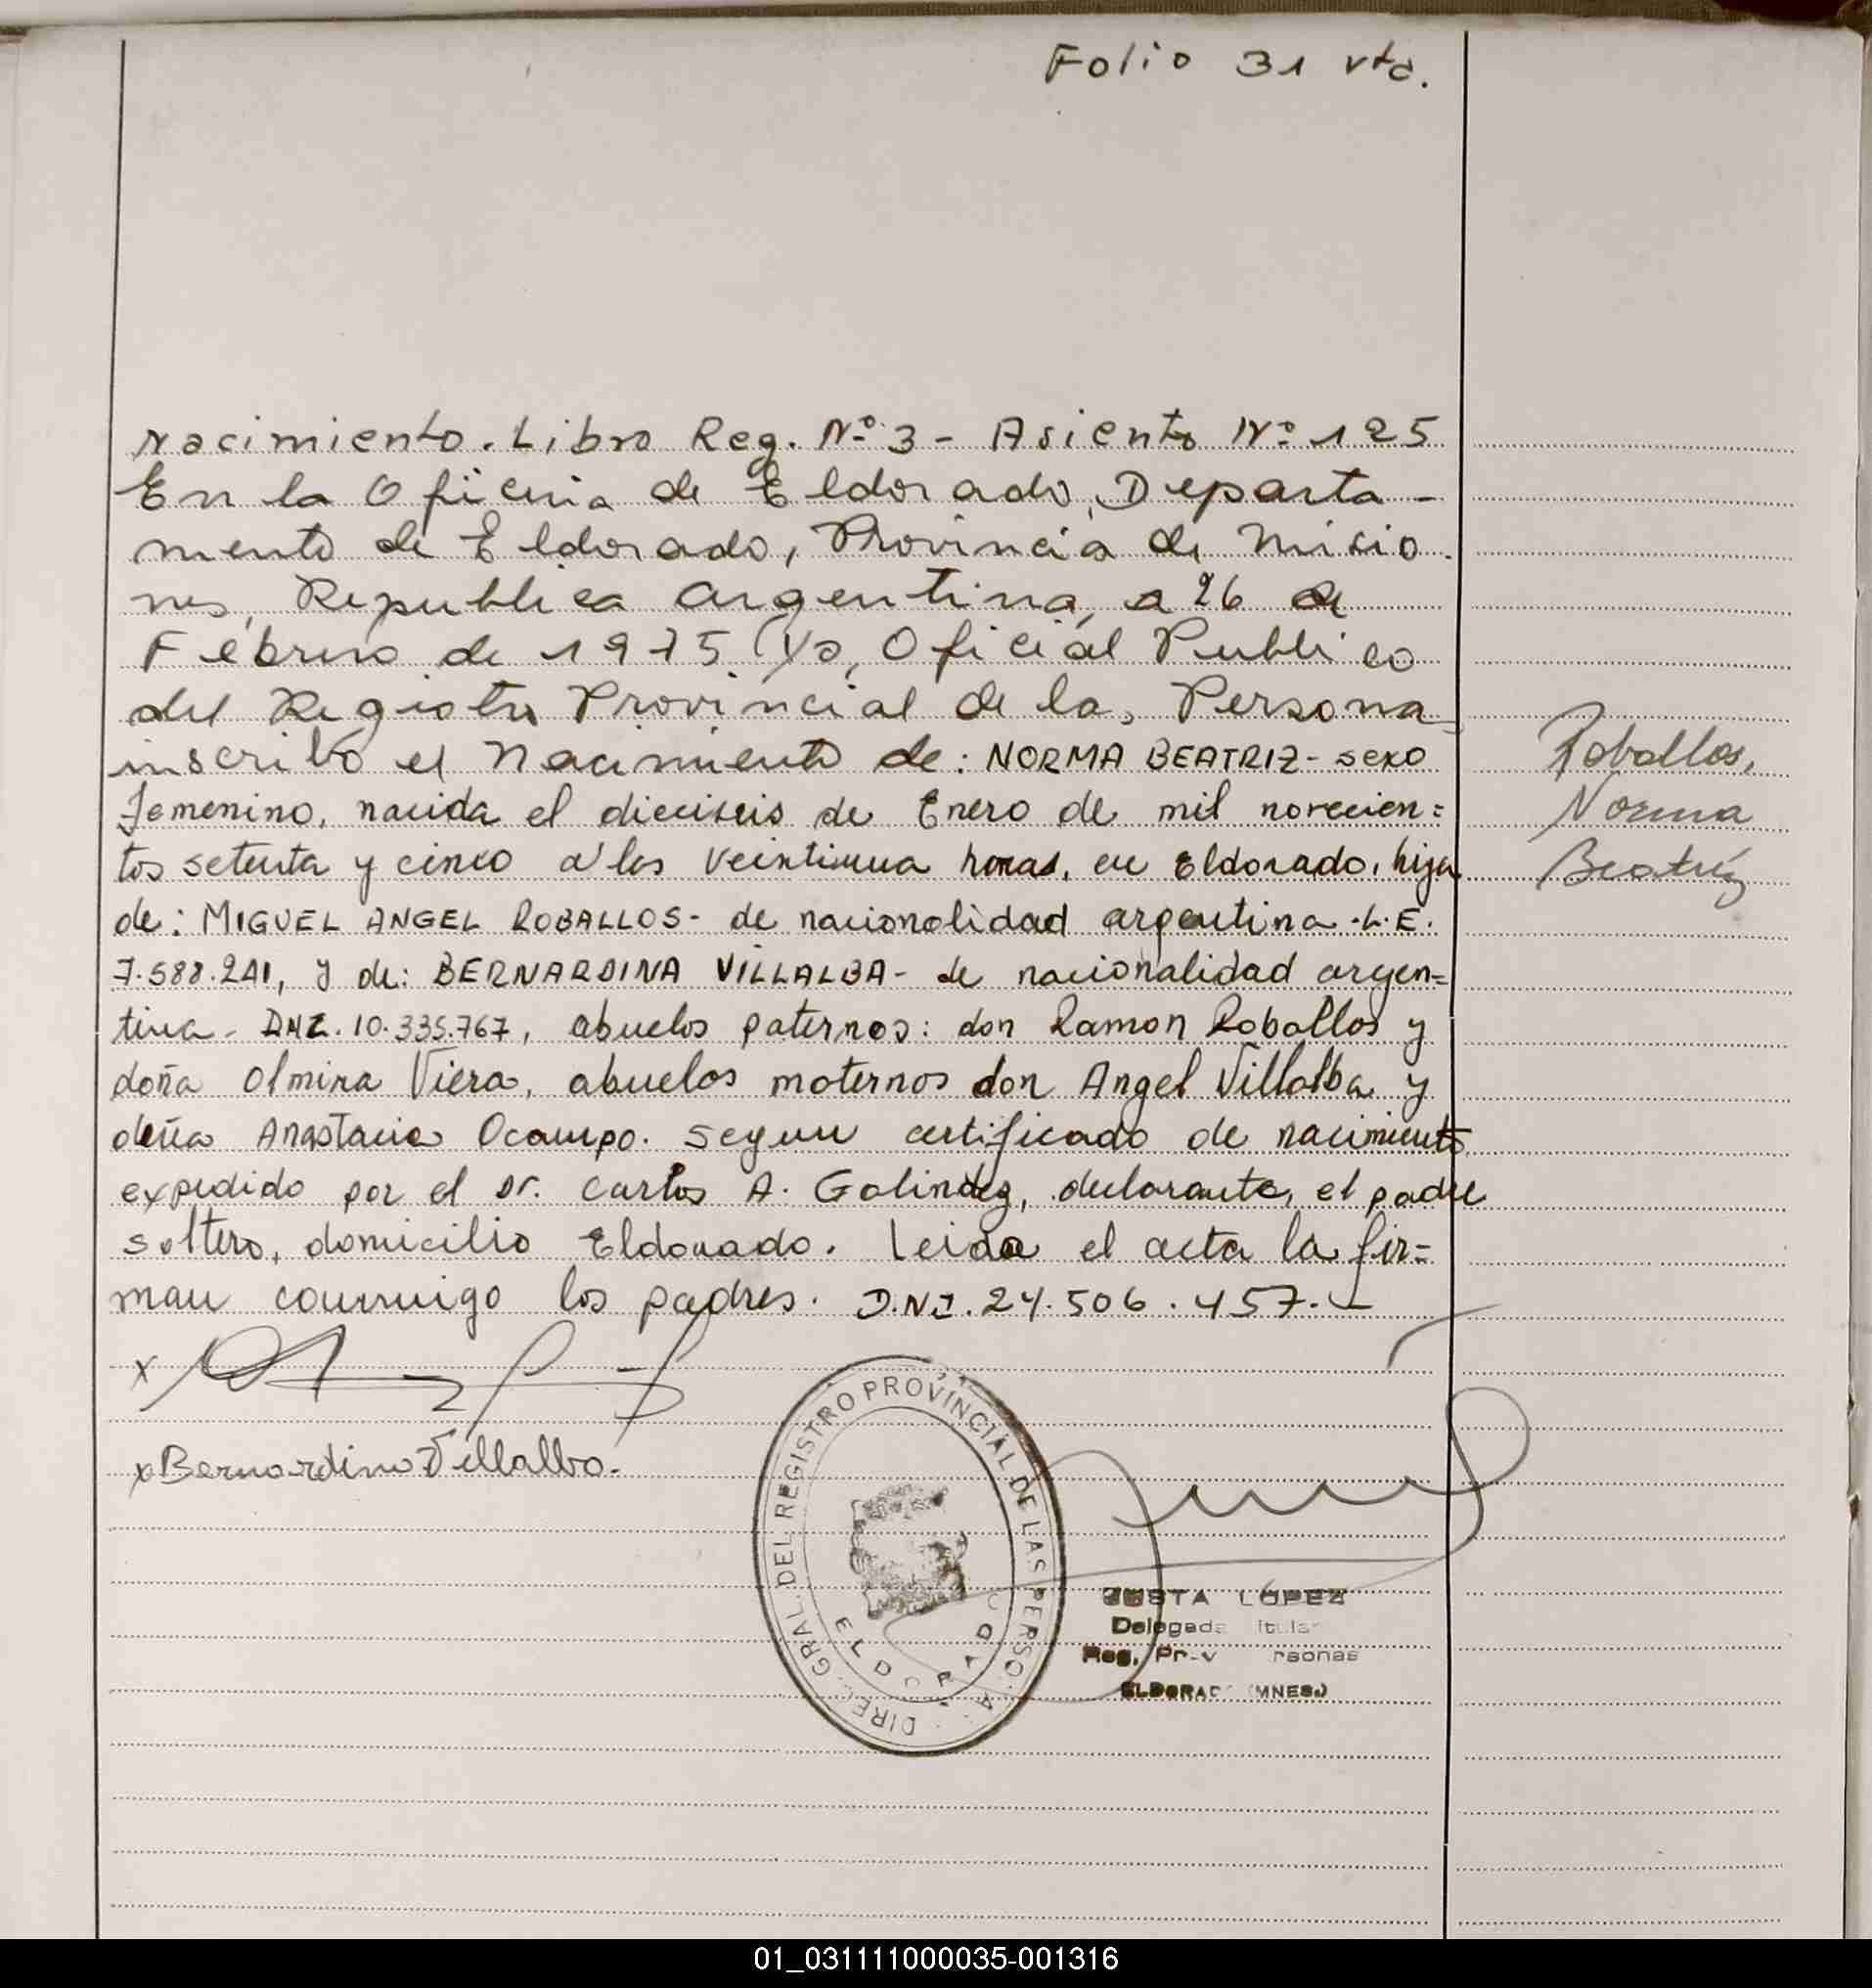 Folio 31 vto.
Nacimiento. Libro Reg. Nº 3 - Asiento Nº 125
En la Oficina de Eldorado, Departa-
mento de Eldorado, Provincia de Misio-
nes, Republica Argentina, a 26 de
Febrero de 1975. Yo, Oficial Publico
del Registro Provincial de las Personas
inscribo el Nacimiento de: NORMA BEATRIZ - sexo
femenino, nacida el dieciseis de Enero de mil novecien=
tos setenta y cinco a las veintiuna horas, en Eldorado, hija
de: MIGUEL ANGEL ROBALLOS - de nacionalidad argentina - L.E.
7.588.241, y de: BERNARDINA VILLALBA - de nacionalidad argen=
tina - DNI. 10.335.767, abuelos paternos: don Ramon Roballos y
doña Olmira Viera, abuelos maternos don Angel Villalba y
doña Anastacia Ocampo. Segun certificado de nacimiento
expedido por el Dr. Carlos A. Galindez, declarante, el padre
soltero, domicilio Eldorado. Leida el acta la fir=
man conmigo los padres. D.N.I. 24.506.457.-
Roballos,
Norma
Beatríz
x
x Bernardina Villalba.
DIREC. GRAL. DEL REGISTRO PROVINCIAL DE LAS PERSONAS
ELDORADO
LOPEZ
Delegada Titular
Reg. Prov. Personas
ELDORADO (MNES.)
01_031111000035-001316